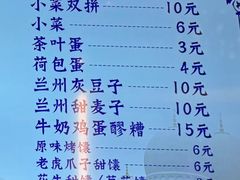 小菜双拼 10元
小菜 6元
茶叶蛋 3元
荷包蛋 4元
兰州灰豆子 10元
兰州甜麦子 10元
牛奶鸡蛋醪糟 15元
原味烤馕 6元
老虎爪子甜馕 6元